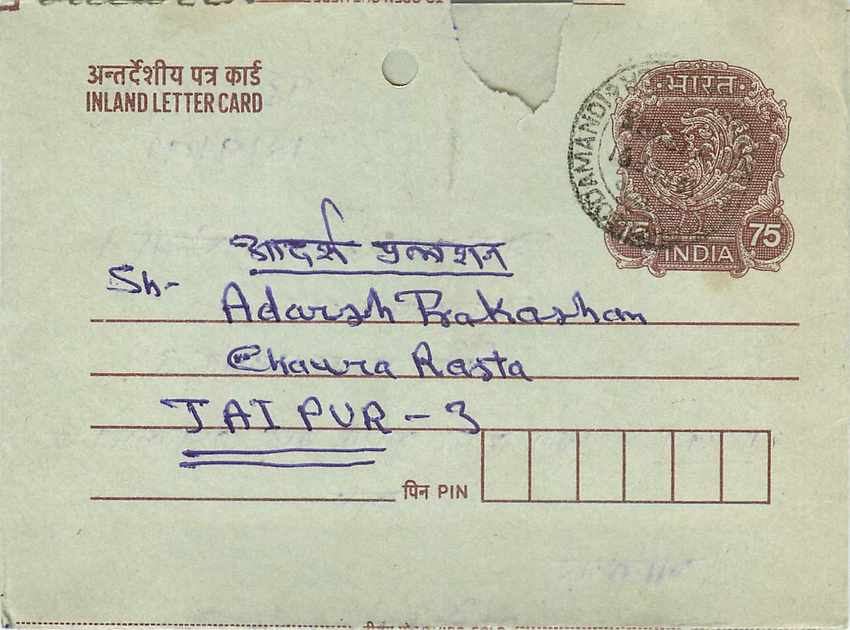 अन्तर्देशीय पत्र कार्ड
INLAND LETTER CARD
भारत
75
INDIA
आदर्श प्रकाशन
Sh-
Adarsh Prakashan
Chaura Rasta
JAIPUR-3
पिन PIN